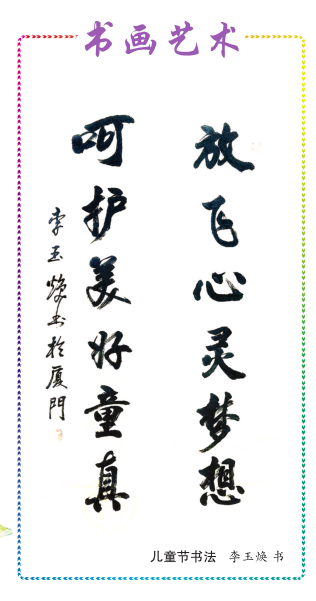 书画艺术
放飞心灵梦想
呵护美好童真
李玉焕书于厦門
儿童节书法 李玉焕 书